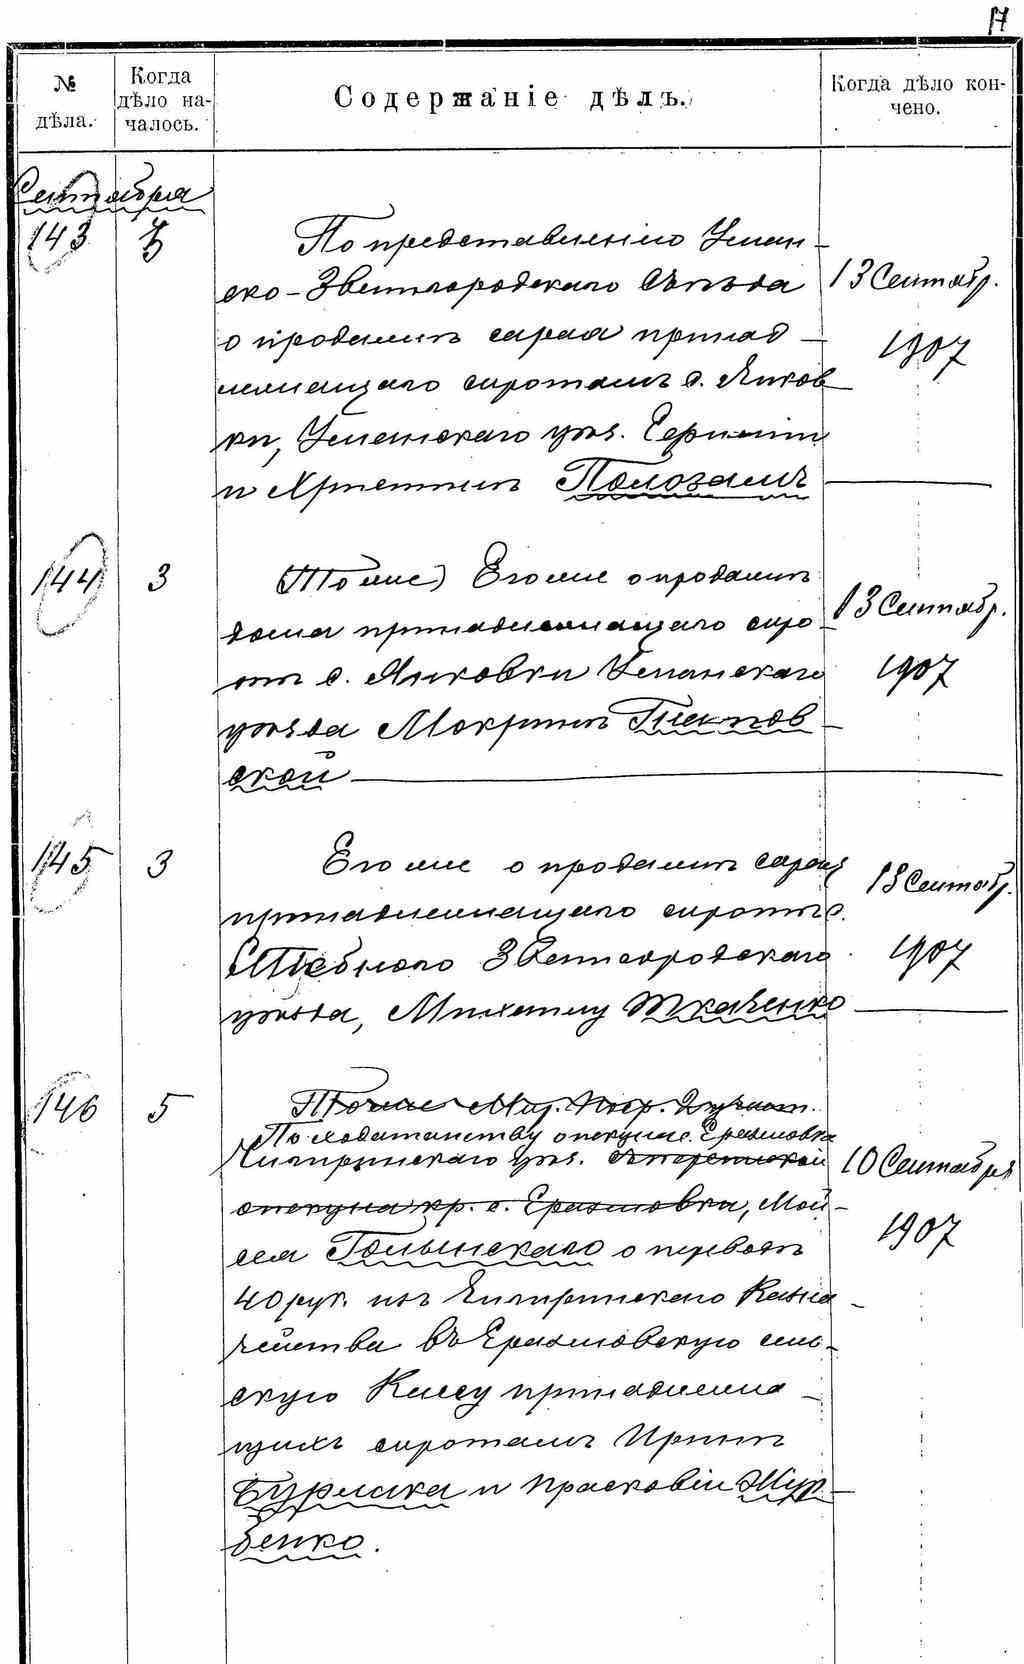 17
№ дѣла.
Когда дѣло началось.
Содержаніе дѣлъ.
Когда дѣло кончено.
Сентября
143
3
По представленію Уман-
ско-Звенигородскаго Съѣзда
о продажѣ сарая принад-
лежащаго сиротамъ с. Янков
ки, Уманскаго уѣз.
и Христинѣ Полозамъ
13 Сентябр.
1907
144
3
(То же) Его же о продажѣ
дома принадлежащаго сиро-
тѣ с. Янковки Уманскаго
уѣзда Мокринѣ
ской
13 Сентябр.
1907
145
3
Его же о продажѣ сарая
принадлежащаго сиротѣ с.
Стебного Звенигородскаго
уѣзда, Михаилу Ткаченко
13 Сентябр.
1907
146
5
То же Мир. Поср.
По ходатайству опекуна с. Еразмовка
Чигиринскаго уѣз.
опекуна кр. с. Еразмовка, Мой-
сея Гольинскаго о переводѣ
40 руб. изъ Чигиринскаго Казна-
чейства въ Еразмовскую сель-
скую Кассу принадлежа-
щихъ сиротамъ Иринѣ
Бурлака и Прасковіи Жур-
бенко.
10 Сентября
1907